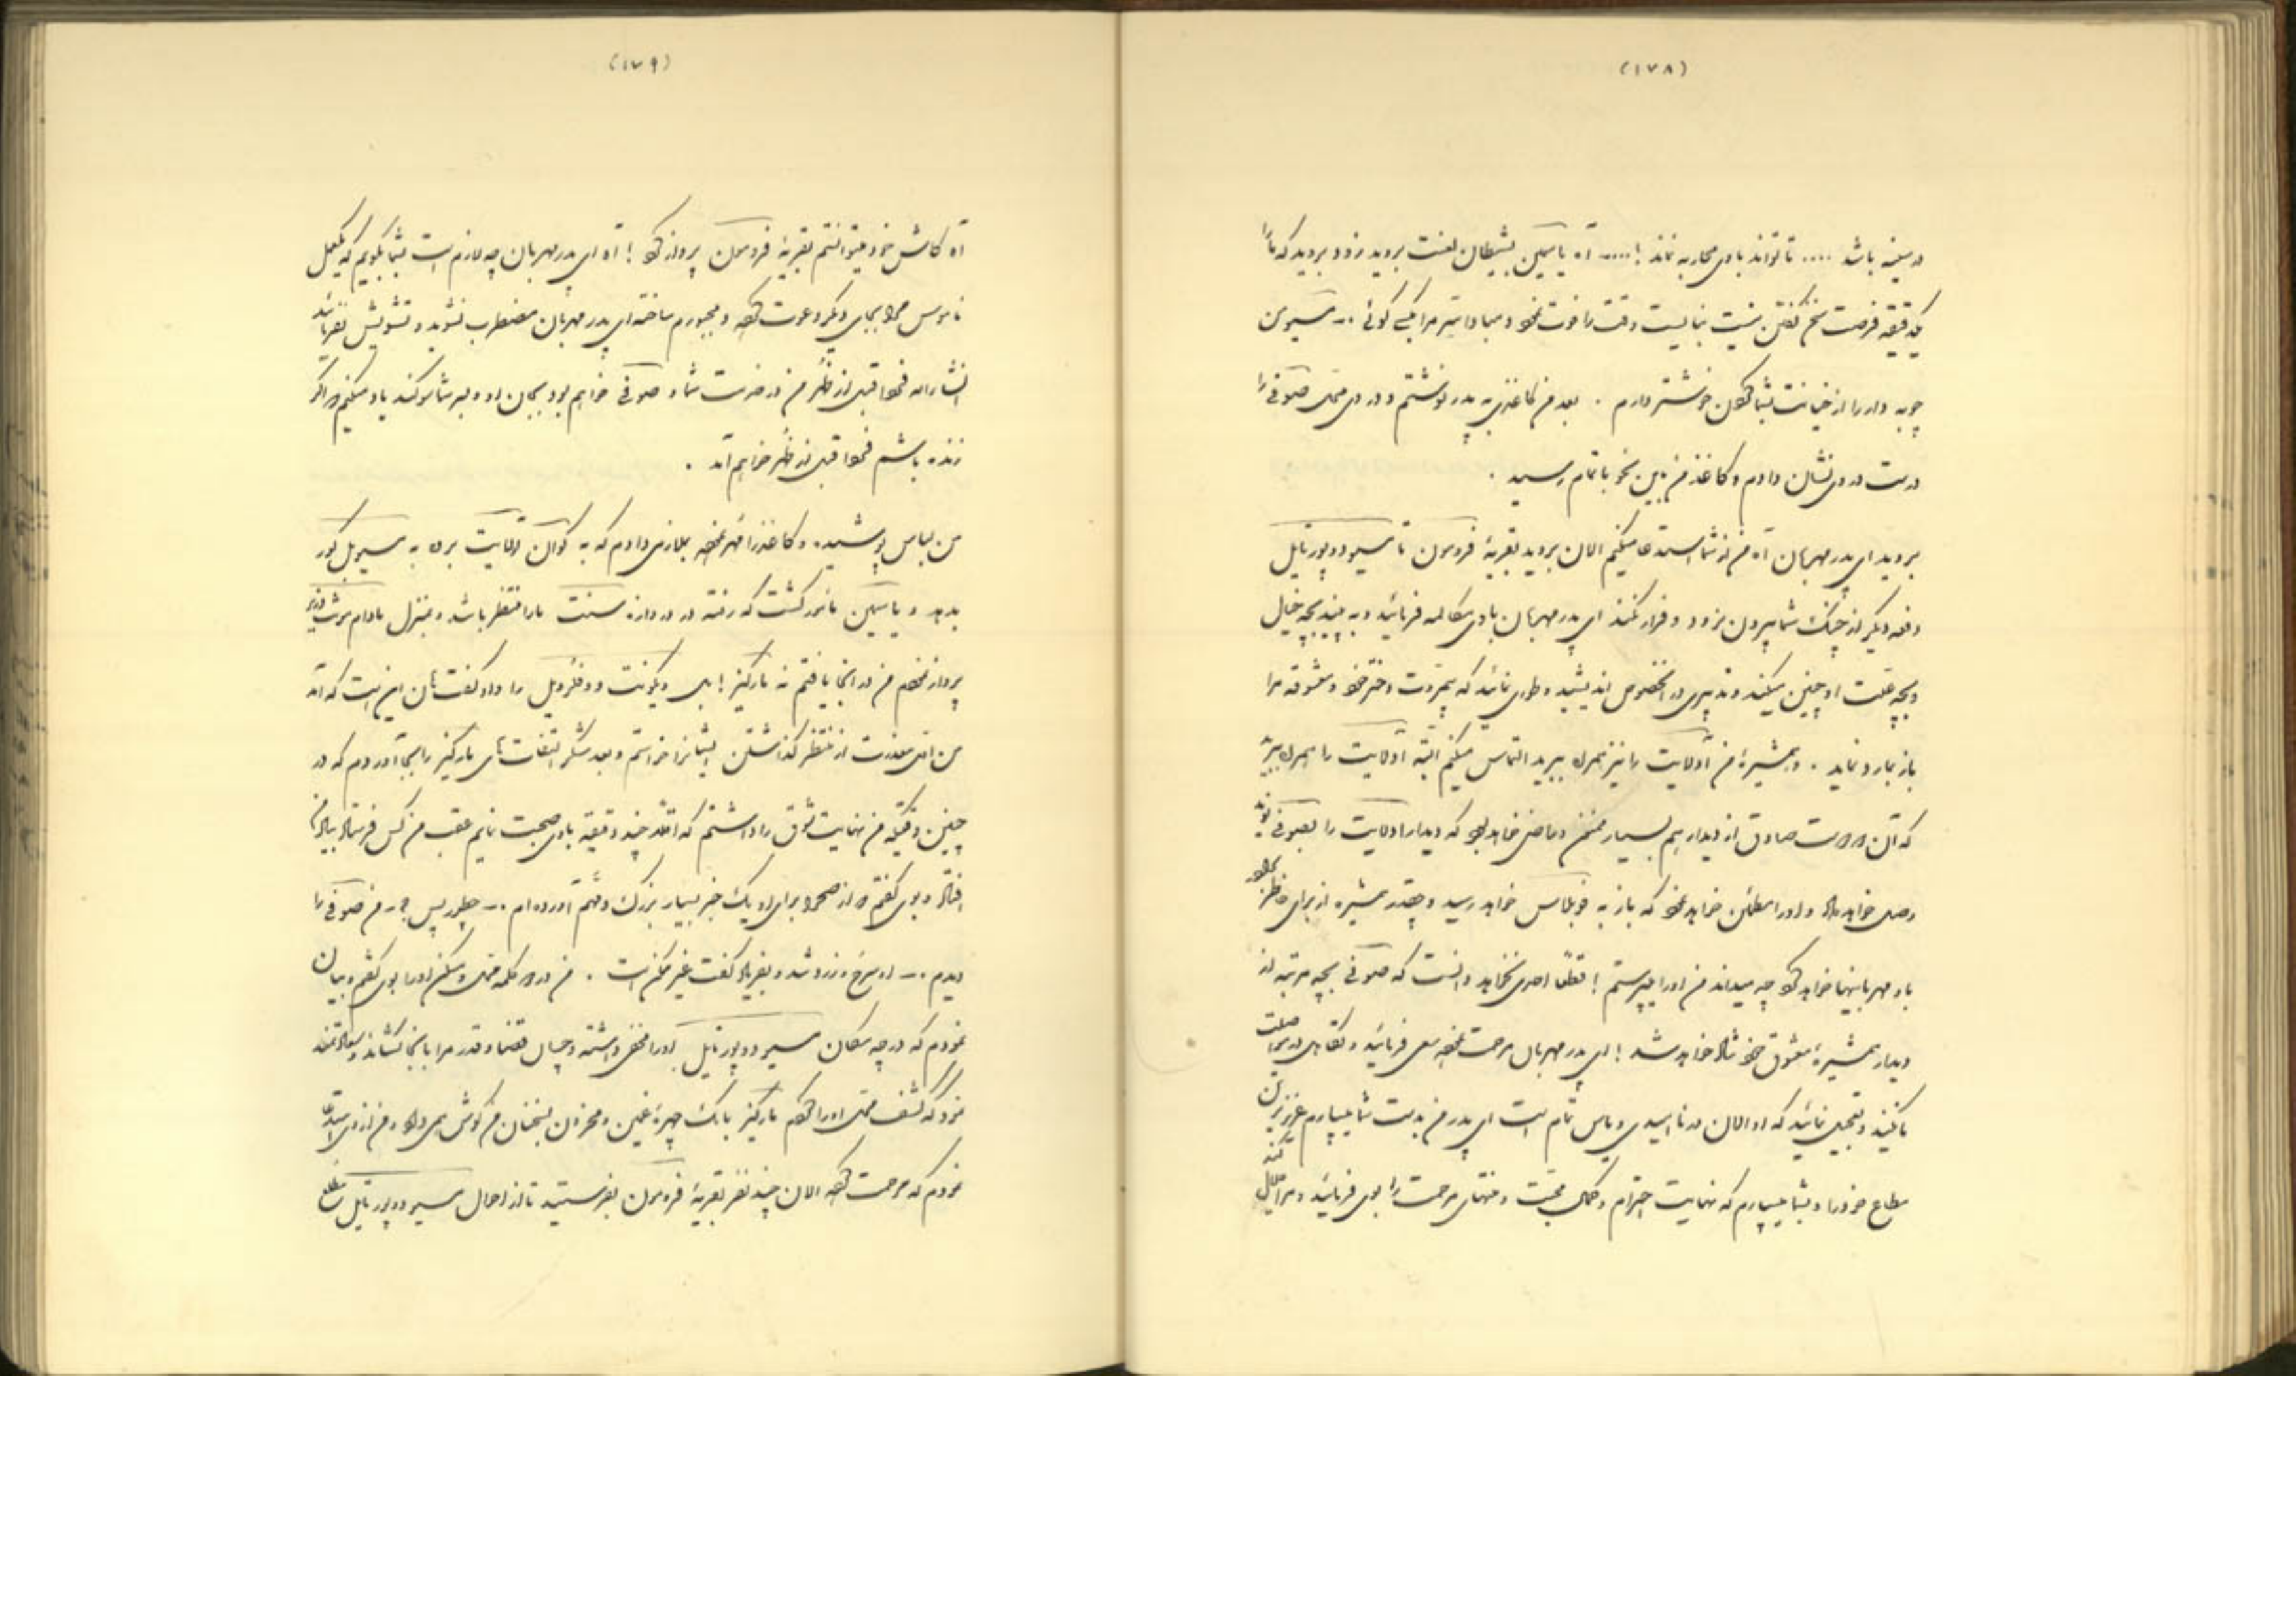 (۱۷۸)
در سینه باشد .... تا تواند با وی محاربه نماند !.... آه یاسمین بشیطان لعنت بروید زود بروید که ما را
یکدقیقه فرصت سخن گفتن نیست نبایست وقت را فوت نمود و مبادا سر مرا بکسی گوئی .ــ مسیو من
چوبه دار را از خیانت بشما کردن خوشتر دارم . بعد من کاغذی به پدر نوشتم و در وی محل صوفی را
درست در وی نشان دادم و کاغذ من باین نحو باتمام رسید .
بروید ای پدر مهربان آه من از شما استدعا میکنم الان بروید بقریهٔ فرومون تا مسیو دوپورتایل
دفعه دیگر از چنگ شما بیرون نرود و فرار نکند ای پدر مهربان با وی مکالمه فرمائید و به بینید بچه خیال
و بچه علت او چنین میکند و تدبیری در اینخصوص اندیشید و طوری نمائید که بمروت دختر خود و معشوقه مرا
باز بمارد نماید . و همشیرهٔ من آدلایت را نیز همراه ببرید التماس میکنم البته آدلایت را همراه ببرید
که آن دوست صادق از دیدار هم بسیار ممنون و راضی خواهد بود که دیدار ادلایت را بصوفی نوید
وصل خواهد داد و او را مطمئن خواهد نمود که باز به فوبلاس خواهد رسید و چقدر همشیره از برای خاطر برادر
باو مهربانیها خواهد کرد چه میداند من او را میپرستم ! قطعا احدی نخواهد دانست که صوفی بچه مرتبه از
دیدار همشیرهٔ معشوق خود شاد خواهد شد ! ای پدر مهربان مرحمت نموده سعی فرمائید و نگاهی در مواصلت
ما کنید و تعجیل نمائید که او الان در ناامیدی و یاس تمام است ای پدر من بدست شما میسپارم عزیزترین
متاع خود را و بشما میسپارم که نهایت احترام و کمال محبت و منتهای مرحمت را بوی فرمائید و مرا
(۱۷۹)
آه کاش خود میتوانستم بقریهٔ فرومون پرواز کرد ! آه ای پدر مهربان چه لازم است بشما بگویم که یکعمل
ناموس مرا بجای دیگر دعوت کرده و مجبورم ساخته ای پدر مهربان مضطرب نشوید و تشویش نفرمائید
انشاءالله فردا قبل از ظهر من در خدمت شما و صوفی خواهم بود بجان او و بسر شما سوگند یاد میکنم و اگر
زنده باشم فردا قبل از ظهر خواهم آمد .
من لباس پوشیده و کاغذ را مهر نموده بملازمی دادم که به کوان آدلایت برده به مسیو بلکور
بدهد و یاسمین مأمور گشت که رفته در دروازه سنت مارا منتظر باشد و بمنزل مادام
پرواز نمودم من در آنجا یافتم نه مارکیز ! بلی ویکونت دوفلورویل را و او گفت الان این است که آمد
من اول معذرت از منتظر گذاشتن ایشان را خواستم و بعد شکر التفات های مارکیز را بجا آوردم که در
چنین وقتیکه من نهایت شوق را داشتم که اقلا چند دقیقه با وی صحبت نمایم عقب من کس فرستاد بیاد من
افتاد و بوی گفتم که از صحرا برای او یک خبر بسیار بزرگ و مهم آورده ام .ــ چطور پس چه .ــ من صوفی را
دیدم .ــ او سرخ و زرد شد و بفریاد گفت غیر ممکن است . من در دو کلمه محل و مسکن او را بوی گفتم و بیان
نمودم که در چه مکان مسیو دوپورتایل او را مخفی داشته و چسان قضا و قدر مرا بآنجا کشاند و سعادتمند
نمود که کشف محل او را کردم مارکیز با یک چهرهٔ غمین و محزون بسخنان من گوش همی داد و من از وی استدعا
نمودم که مرحمت کرده الان چند نفر بقریهٔ فرومون بفرستید تا از احوال مسیو دوپورتایل مطلع